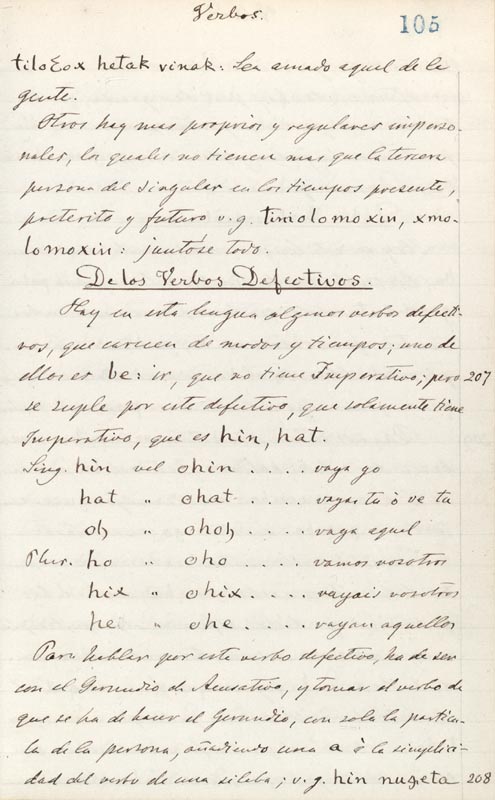 Verbos.
105
tiloɛox hetak vinak: Sea amado aquel de la
gente.
Otros hay mas proprios y regulares imperso-
nales, los quales no tienen mas que la tercera
persona del singular en los tiempos presente,
preterito y futuro v.g. timolomoxin, xmo-
lomoxin: juntóse todo.
De los Verbos Defectivos.
Hay en esta lengua algunos verbos defecti-
vos, que carecen de modos y tiempos; uno de
ellos es be: ir, que no tiene Imperativo; pero 207
se suple por este defectivo, que solamente tiene
Imperativo, que es hin, hat.
Sing. hin vel ohin .... vaya yo
hat " ohat .... vayas tu ò ve tu
oh " ohoh .... vaya aquel
Plur. ho " oho .... vamos nosotros
hix " ohix .... vayais vosotros
he " ohe .... vayan aquellos
Para hablar por este verbo defectivo, ha de ser
con el Gerundio de Acusativo, y tomar el verbo de
que se ha de hacer el Gerundio, con sola la particu-
la de la persona, añadiendo una a à la simplici-
dad del verbo de una silaba; v.g. hin nuɜeta 208